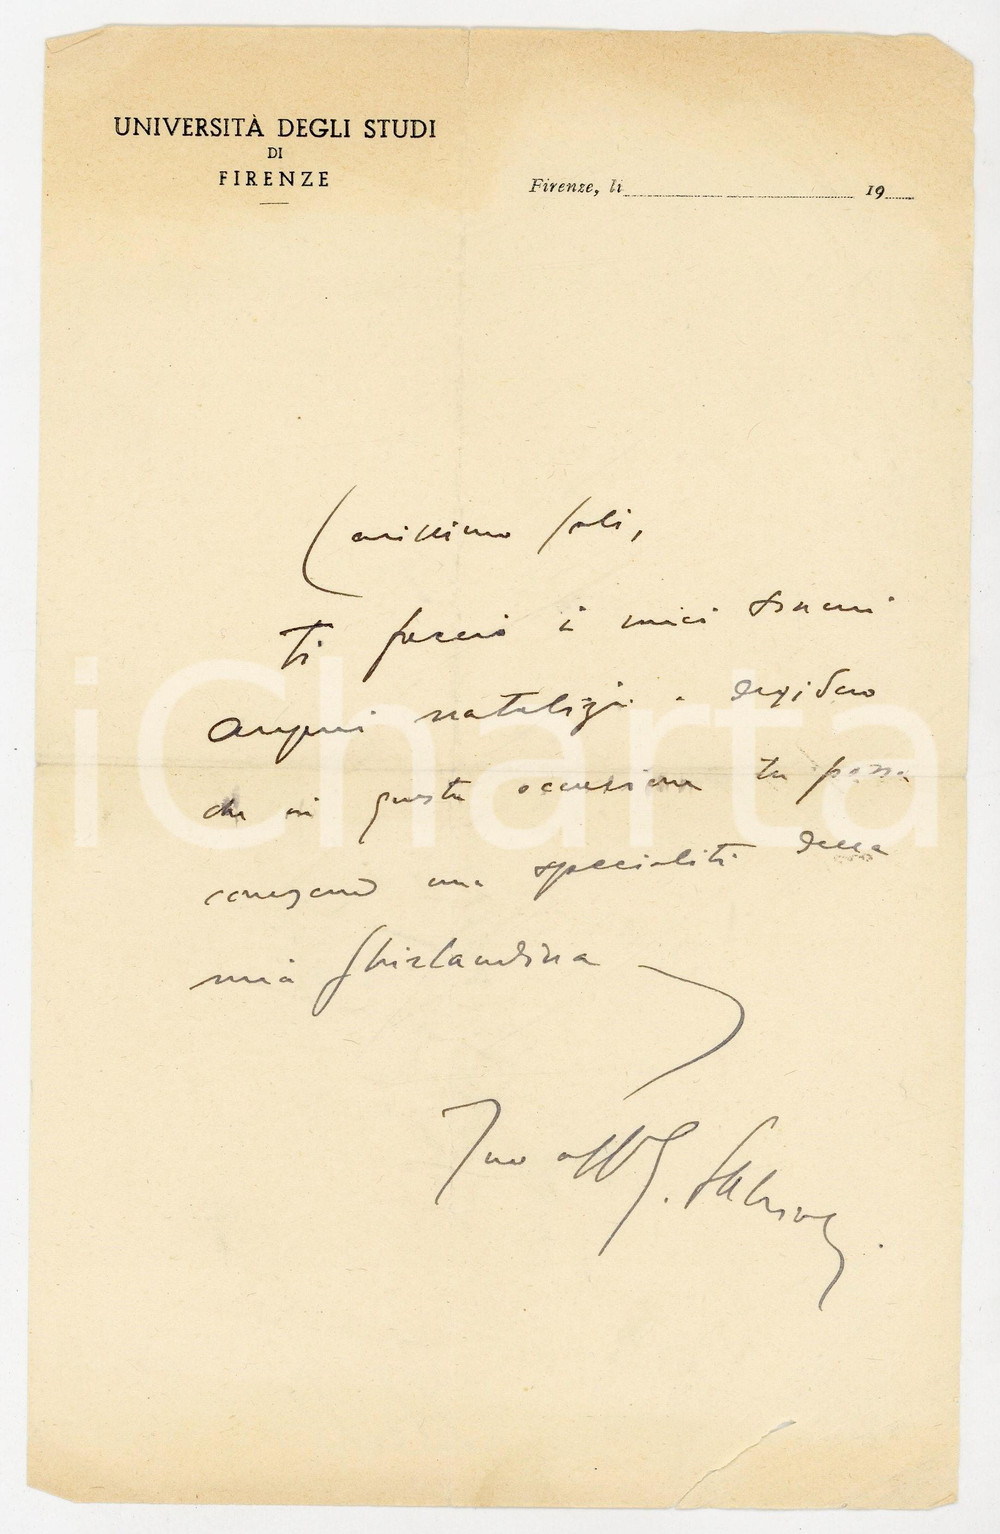 UNIVERSITÀ DEGLI STUDI
DI
FIRENZE
Firenze, li 19
Carissimo Soli,
ti faccio i miei
auguri natalizi e desidero
che in questa occasione tu possa
una specialità della
mia Ghirlandina
Tuo aff G.
iCharta